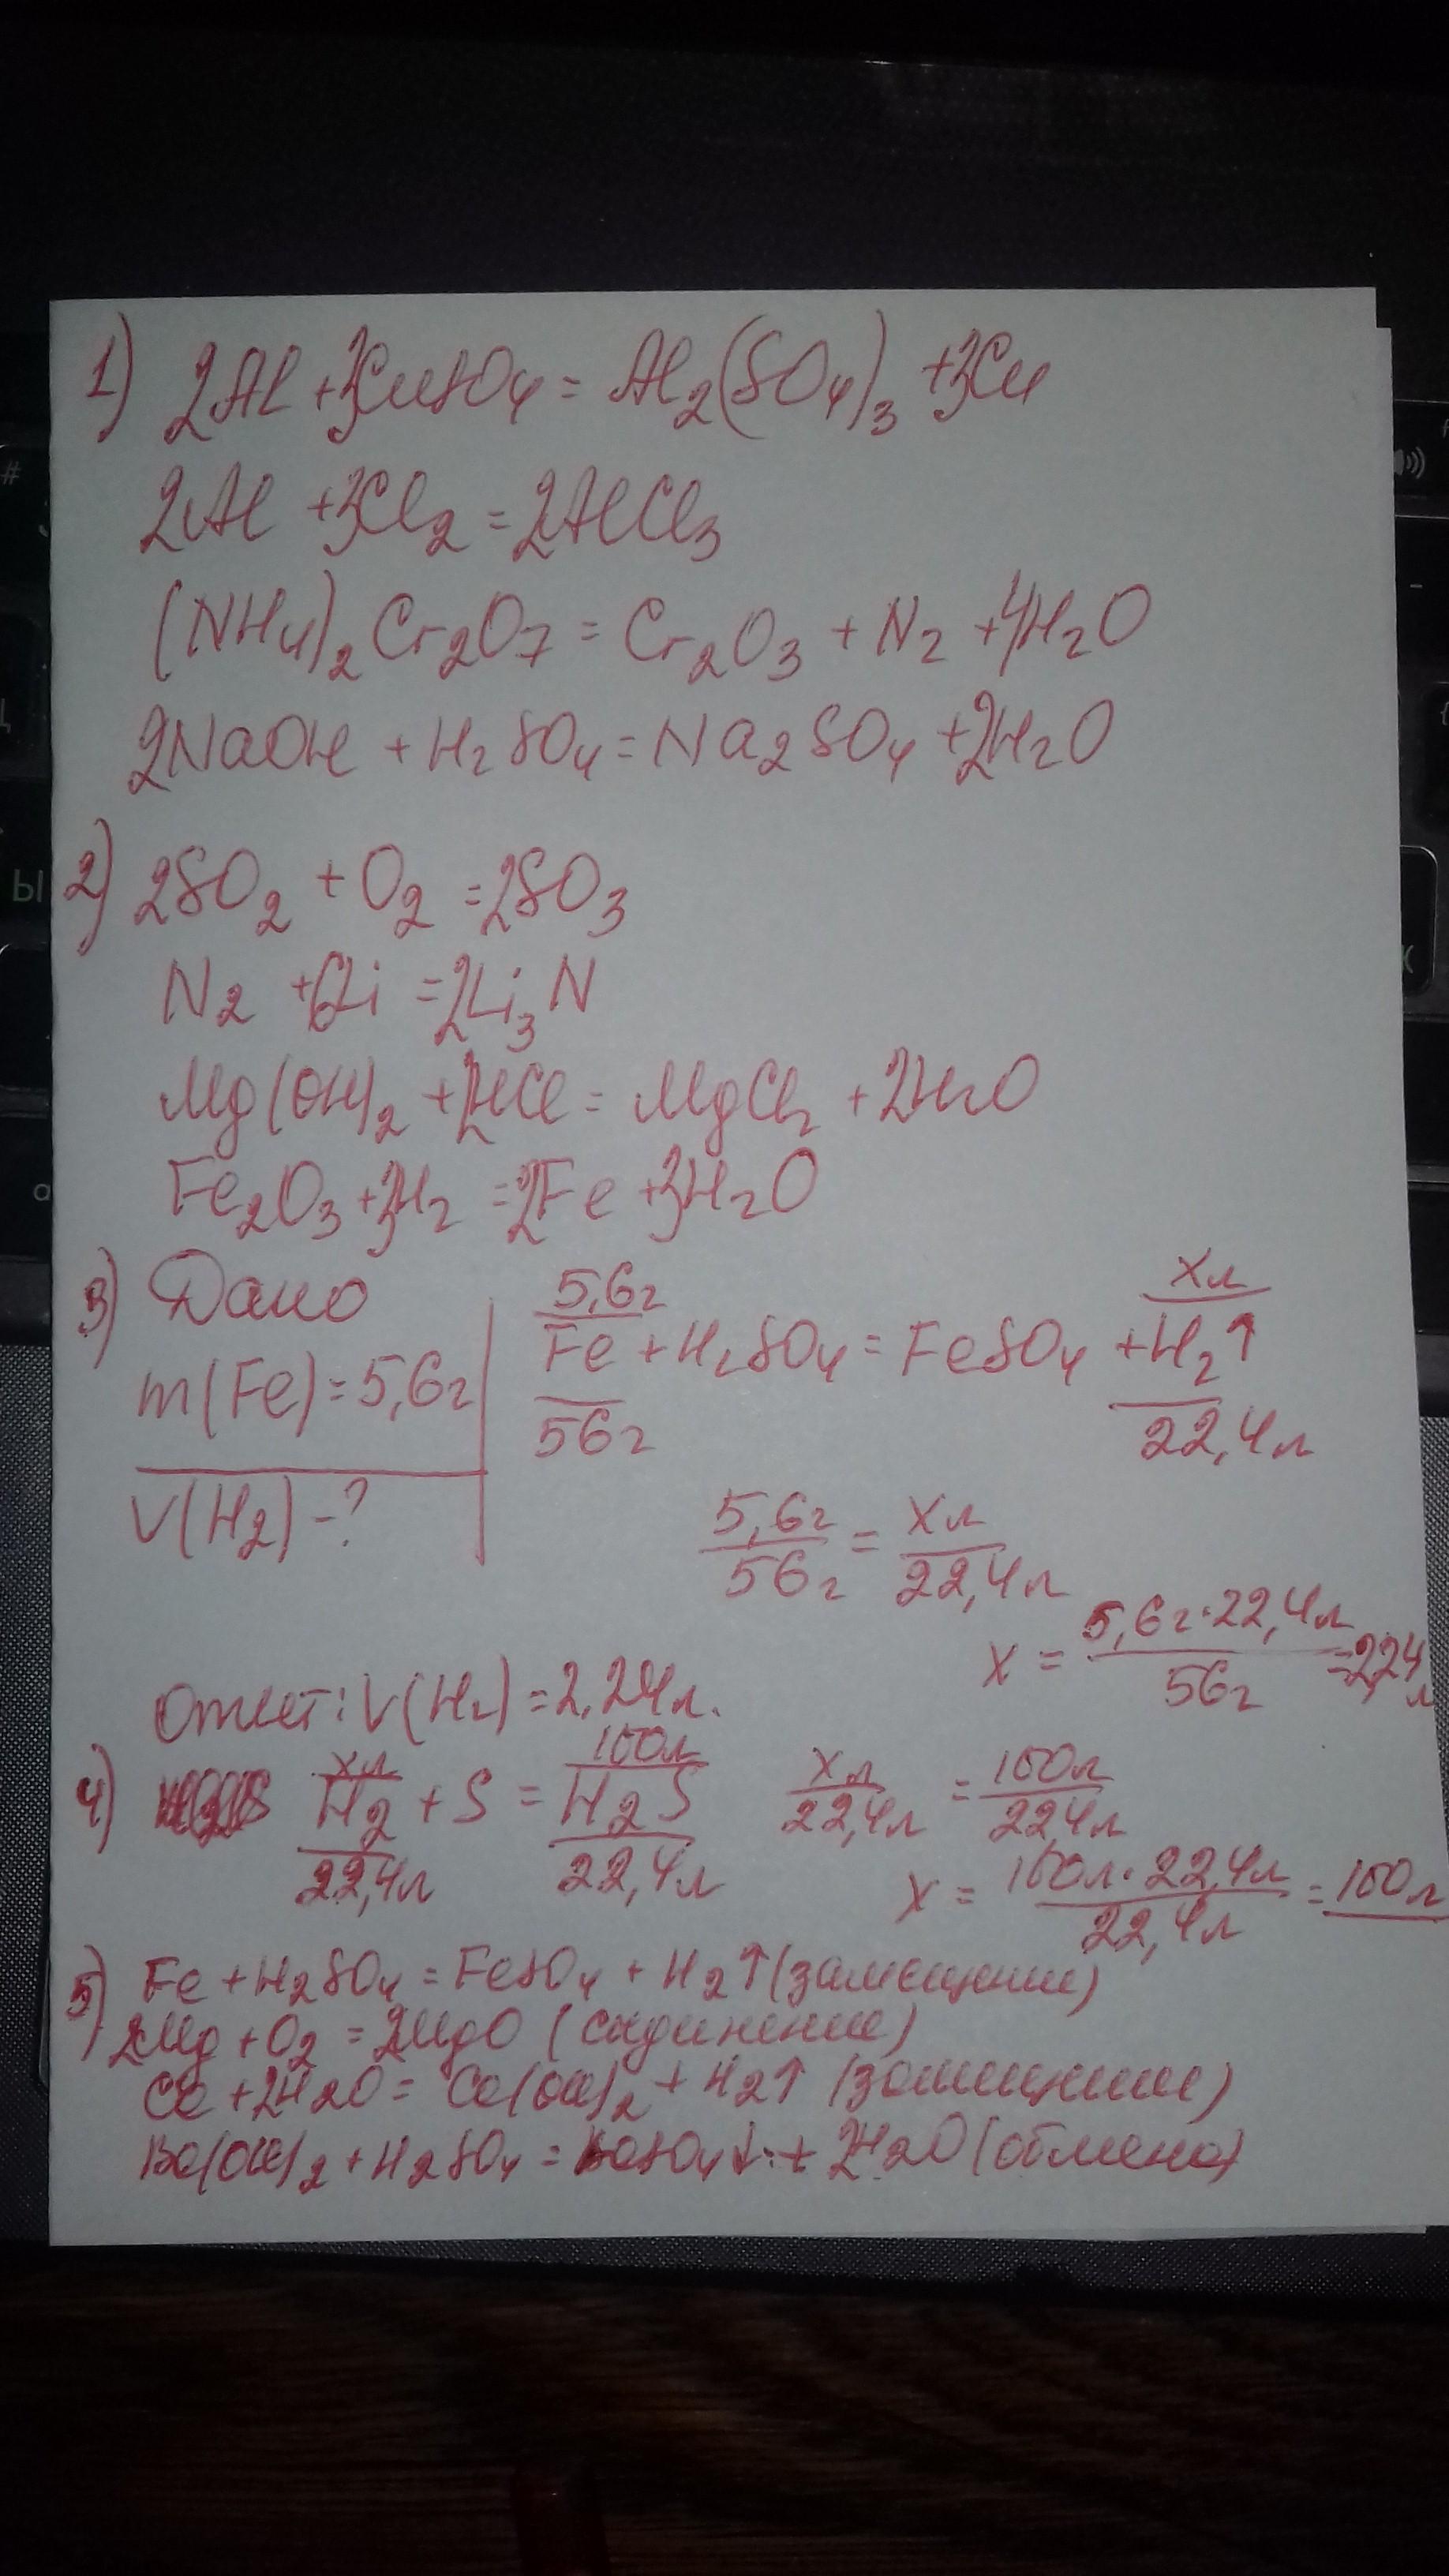 1) 2Al + 3CuSO4 = Al2(SO4)3 + 3Cu
2Al + 3Cl2 = 2AlCl3
(NH4)2Cr2O7 = Cr2O3 + N2 + 4H2O
2NaOH + H2SO4 = Na2SO4 + 2H2O
2) 2SO2 + O2 = 2SO3
N2 + 6Li = 2Li3N
Mg(OH)2 + 2HCl = MgCl2 + 2H2O
Fe2O3 + 3H2 = 2Fe + 3H2O
3) Дано
m(Fe) = 5,6г
V(H2) - ?
5,6г xл
Fe + H2SO4 = FeSO4 + H2↑
56г 22,4л
5,6г/56г = xл/22,4л
x = 5,6г·22,4л/56г = 2,24л
Ответ: V(H2) = 2,24л.
4) xл 150л
H2 + S = H2S
22,4л 22,4л
xл/22,4л = 150л/22,4л
x = 150л·22,4л/22,4л = 150л
5) Fe + H2SO4 = FeSO4 + H2↑ (замещение)
2Mg + O2 = 2MgO (соединение)
Ca + 2H2O = Ca(OH)2 + H2↑ (замещение)
Ba(OH)2 + H2SO4 = BaSO4↓ + 2H2O (обмена)
#
Ы